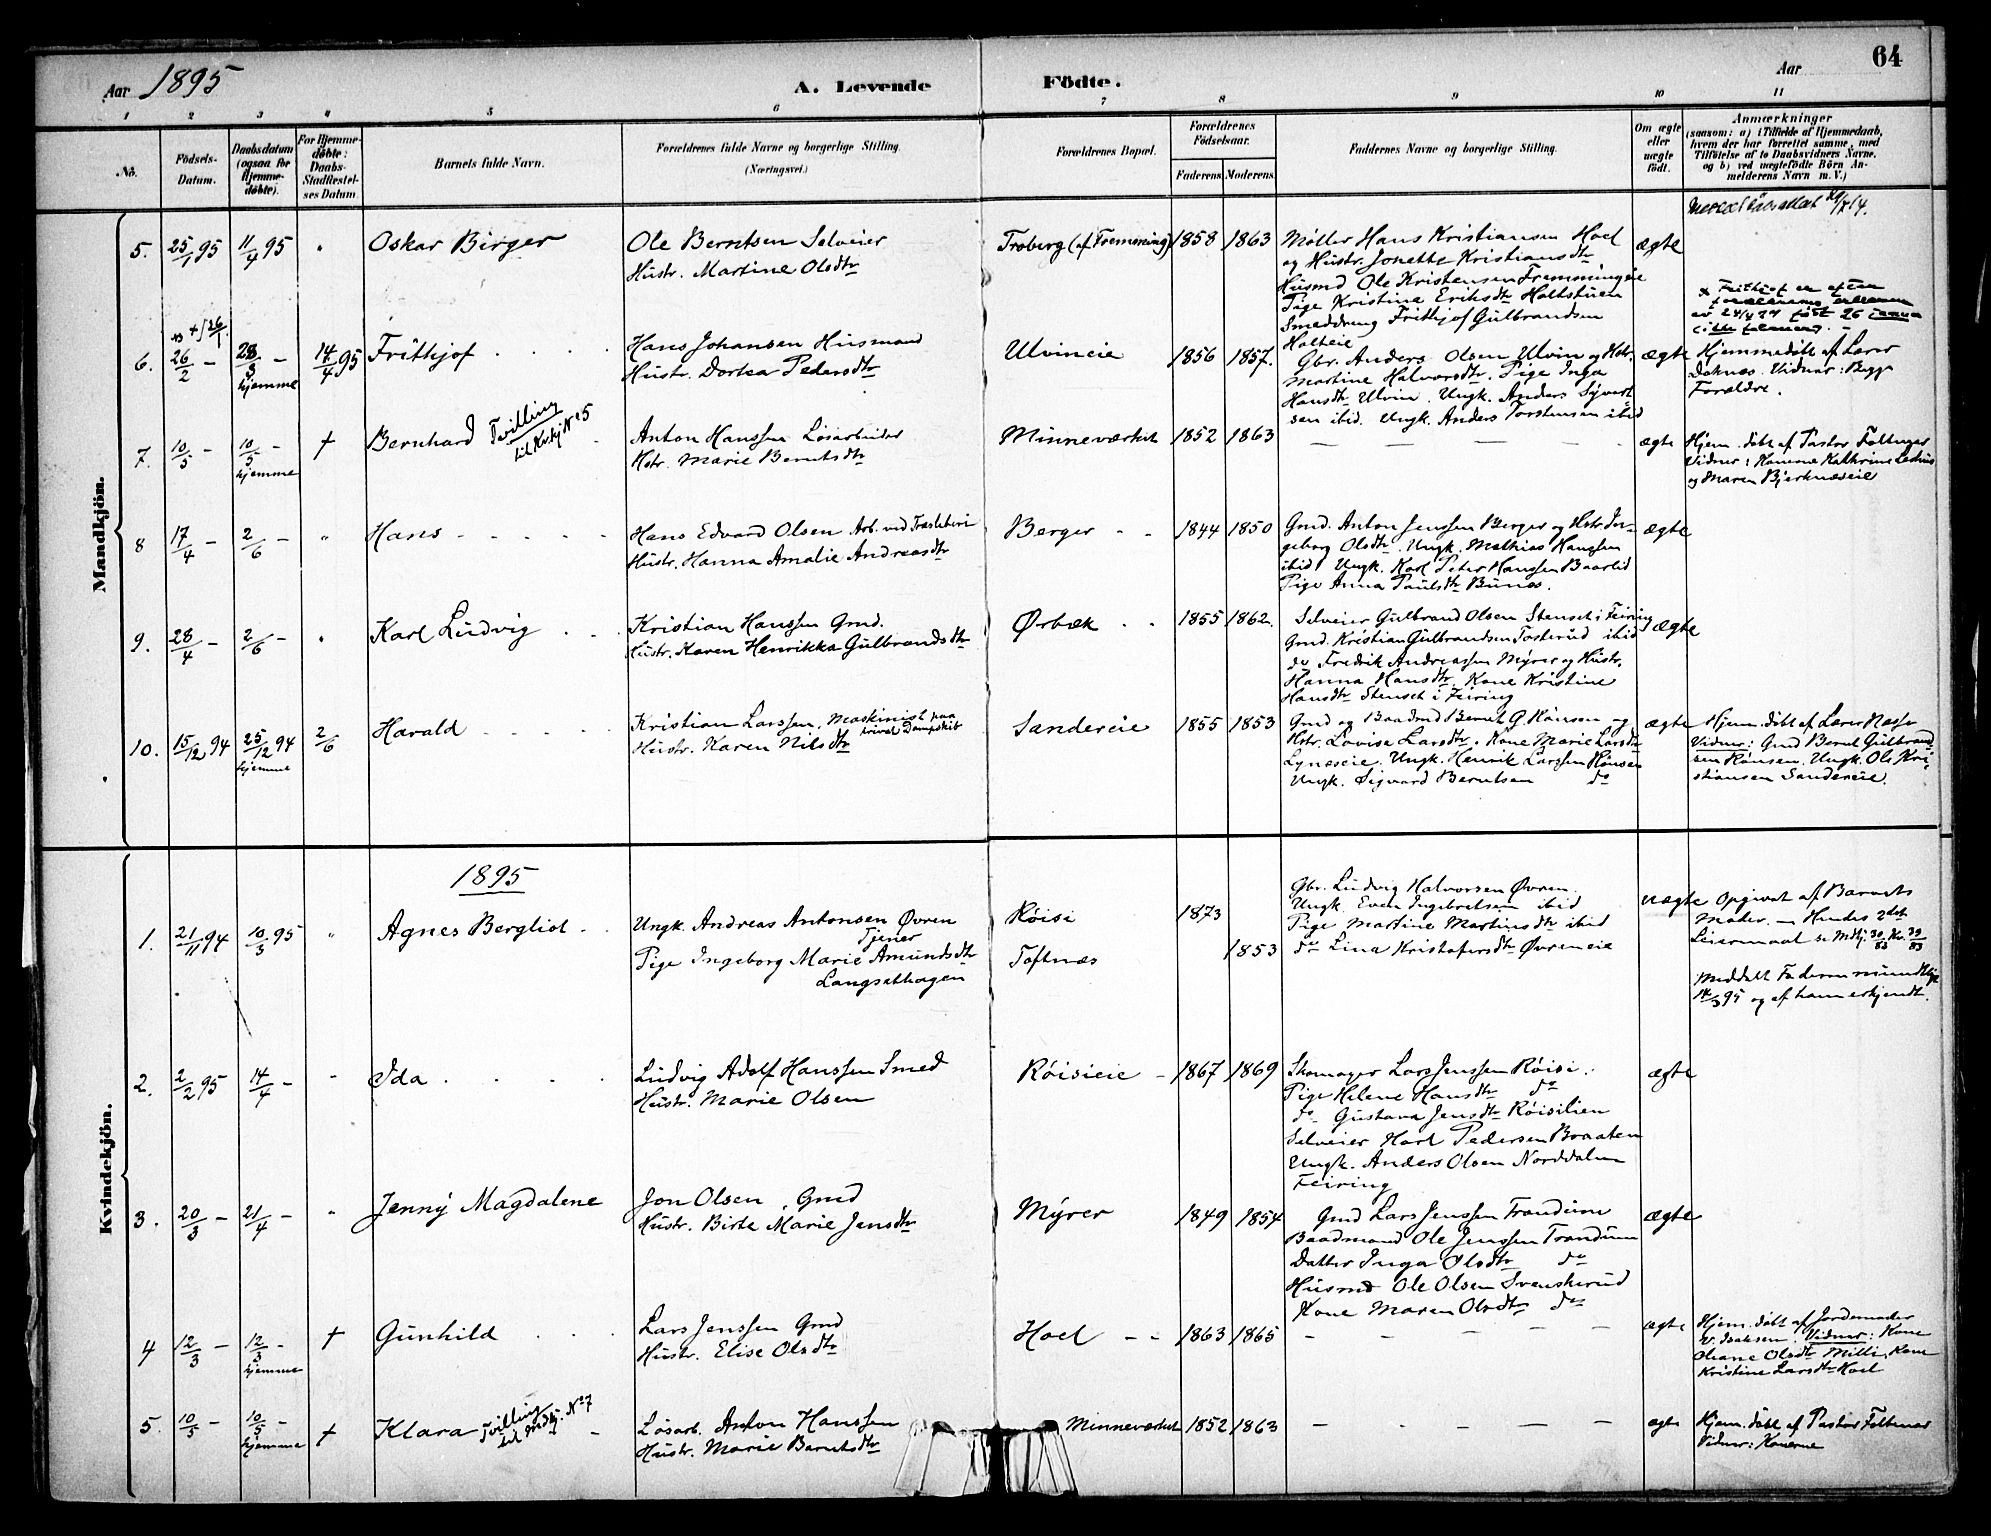 Aar 1895
A. Levende Födte.
Aar
64
1 2 3 4 5 6 7 8 9 10 11
No.
Födsels-Datum.
Daabsdatum (ogsaa for Hjemmedöbte).
For Hjemmedöbte: Daabs-Stadfæstelses Datum.
Barnets fulde Navn.
Forældrenes fulde Navne og borgerlige Stilling. (Næringsvei.)
Forældrenes Bopæl.
Forældrenes Födselsaar.
Faderens Moderens
Faddernes Navne og borgerlig Stilling.
Om ægte eller uægte födt.
Anmærkninger
(saasom: a) i Tilfælde af Hjemmedaab, hvem der har forrettet samme, med Tilföielse af to Daabsvidners Navne, og b) ved uægtefödte Börn Anmelderens Navn m. V.)
Mandkjön.
5. 25/1 95 11/4 95 " Oskar Birger
Ole Berntsen Selveier
Hustr. Martine Olsdtr
Troberg (af Fremming) 1858 1863
Møller Hans Kristiansen Hoel
og Hustr. Jonette Kristiansdtr
Husmd Ole Kristensen Fremmingeie
Pige Kristine Eriksdtr Holtstuen
Smeddreng Frithjof Gulbrandsen
Holteie
ægte
6. 26/2 – 28/3 – hjemme 14/4 95 Frithjof
Hans Johansen Husmand
Hustr. Dortea Pedersdtr
Ulvineie 1856 1857.
Gbr. Anders Olsen Ulvin og Hstr.
Martine Halvorsdtr. Pige Inga
Hansdtr Ulvin. Ungk. Anders Syvert
sen ibid. Ungk. Anders Torstensen ibid
ægte
x Frithjof er efter
av 24/4 74 født 26
Hjemmedøbt af Lærer
Doknæs. Vidner: Begge
Forældre.
7. 10/5 – 10/5 – hjemme † Bernhard Tvilling til Kvkj No 5
Anton Hanssen Løsarbeider
Hstr. Marie Berntsdtr
Minneværket 1852 1863 — — — — —
ægte
Hjem. døbt af Pastor Foltmar
Vidner: Konerne Kathrine
og Maren Bjerknæseie
8 17/4 – 2/6 – " Hans
Hans Edvard Olsen Arb. ved Træsliberi
Hustr. Hanna Amalie Andreasdtr
Berger 1844 1850
Gmd. Anton Jenssen Berger og Hstr. In-
geborg Olsdtr. Ungk. Mathias Hanssen
ibid. Ungk. Karl Peter Hanssen Baarlid
Pige Anna Paulsdtr Bunæs.
ægte
9. 28/4 – 2/6 – " Karl Ludvig
Kristian Hanssen Gmd.
Hustr. Karen Henrikka Gulbrandsdtr
Ørbæk 1855 1862.
Selveier Gulbrand Olsen Stenset i Feiring
Gmd. Kristian Gulbrandsen Tosterud ibid
do Fredrik Andreassen Myrer og Hustr.
Hanna Hansdtr. Kone Kristine
Hansdtr Stenset i Feiring
ægte
10. 15/12 94 25/12 94 hjemme 2/6 Harald
Kristian Larssen. Maskinist paa
privat Dampskib
Hustr. Karen Nilsdtr
Sandereie 1855 1853
Gmd og Baadmd Bernt G. Rønsen og
Hstr. Lovise Larsdtr. Kone Marie Larsdtr
Lynæseie. Ungk. Henrik Larssen Rønsen
Ungk. Sigvard Berntsen do
ægte
Hjem. døbt af Lærer Næss
Vidner: Gmd Bernt Gulbrand-
sen Rønsen. Ungk. Ole Kri-
stiansen Sandereie.
Kvindekjön.
1895
1. 21/11 94 10/3 95 " Agnes Bergliot
Ungk. Andreas Antonsen Øvren
Tjener
Pige Ingeborg Marie Amundsdtr
Langsethagen
Røisi 1873
Toftnæs 1853
Gbr. Ludvig Halvorsen Øvren.
Ungk. Even Ingebretsen ibid
Pige Martine Martinsdtr ibid
do Lina Kristofersdtr Øvreneie
uægte
Opgivet af Barnets
Moder. — Hendes 2det
Leiermaal se Mdkj. 30/83 Kv. 39/83
Meddelt Faderen mundtlig
14/3 95 og af ham erkjendt.
2. 2/2 95 14/4 – " Ida
Ludvig Adolf Hanssen Smed
Hustr. Marie Olsen
Røisieie 1867 1869
Skomager Lars Jenssen Røisi.
Pige Helene Hansdtr do
do Gustava Jensdtr Røisilien
Selveier Karl Pedersen Braaten
Ungk. Anders Olsen Norddalen
Feiring
ægte
3. 20/3 – 21/4 – " Jenny Magdalene
Jon Olsen, Gmd
Hustr. Birte Marie Jensdtr
Myrer 1849 1854
Gmd Lars Jenssen Trandum
Baadmand Ole Jenssen Trandum
Datter Inga Olsdtr do
Husmd Ole Olsen Svenskerud
Kone Maren Olsdtr do
ægte
4 12/3 – 12/3 – hjemme † Gunhild
Lars Jenssen Gmd
Hustr. Elise Olsdtr
Hoel 1863 1865 – – – – –
ægte
Hjem. døbt af Jordemoder
V. Isaksen. Vidner: Kone
Oleane Olsdtr Milli, Kone
Kristine Larsdtr Hoel
5. 10/5 – 10/5 – hjemme † Klara Tvilling til Mdkj. No 7
Løsarb. Anton Hanssen
Hustr. Marie Berntsdtr
Minneværket 1852 1863 – – – – –
ægte
Hjem. døbt af Pastor Foltmar
Vidner: Konerne